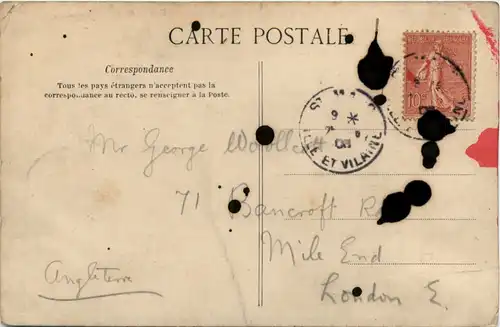 CARTE POSTALE
Correspondance
Tous les pays étrangers n'acceptent pas la
correspo..ance au recto. se renseigner à la Poste.
10
6 *
ILLE ET VILAINE
Mr George
71 Bancroft
Mile End
London E.
Angleterre